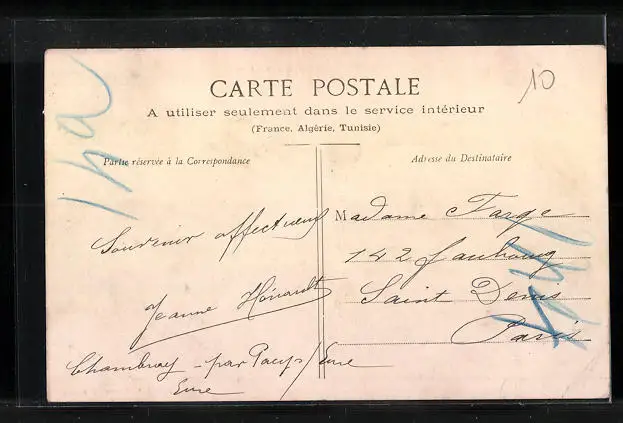 CARTE POSTALE
A utiliser seulement dans le service intérieur
(France, Algérie, Tunisie)
Partie réservée à la Correspondance
Adresse du Destinataire
10
Souvenir affectueux
Jeanne
Chambray - par Pacy s/ Eure
Eure
Madame Farge
142 faubourg
Saint Denis
Paris